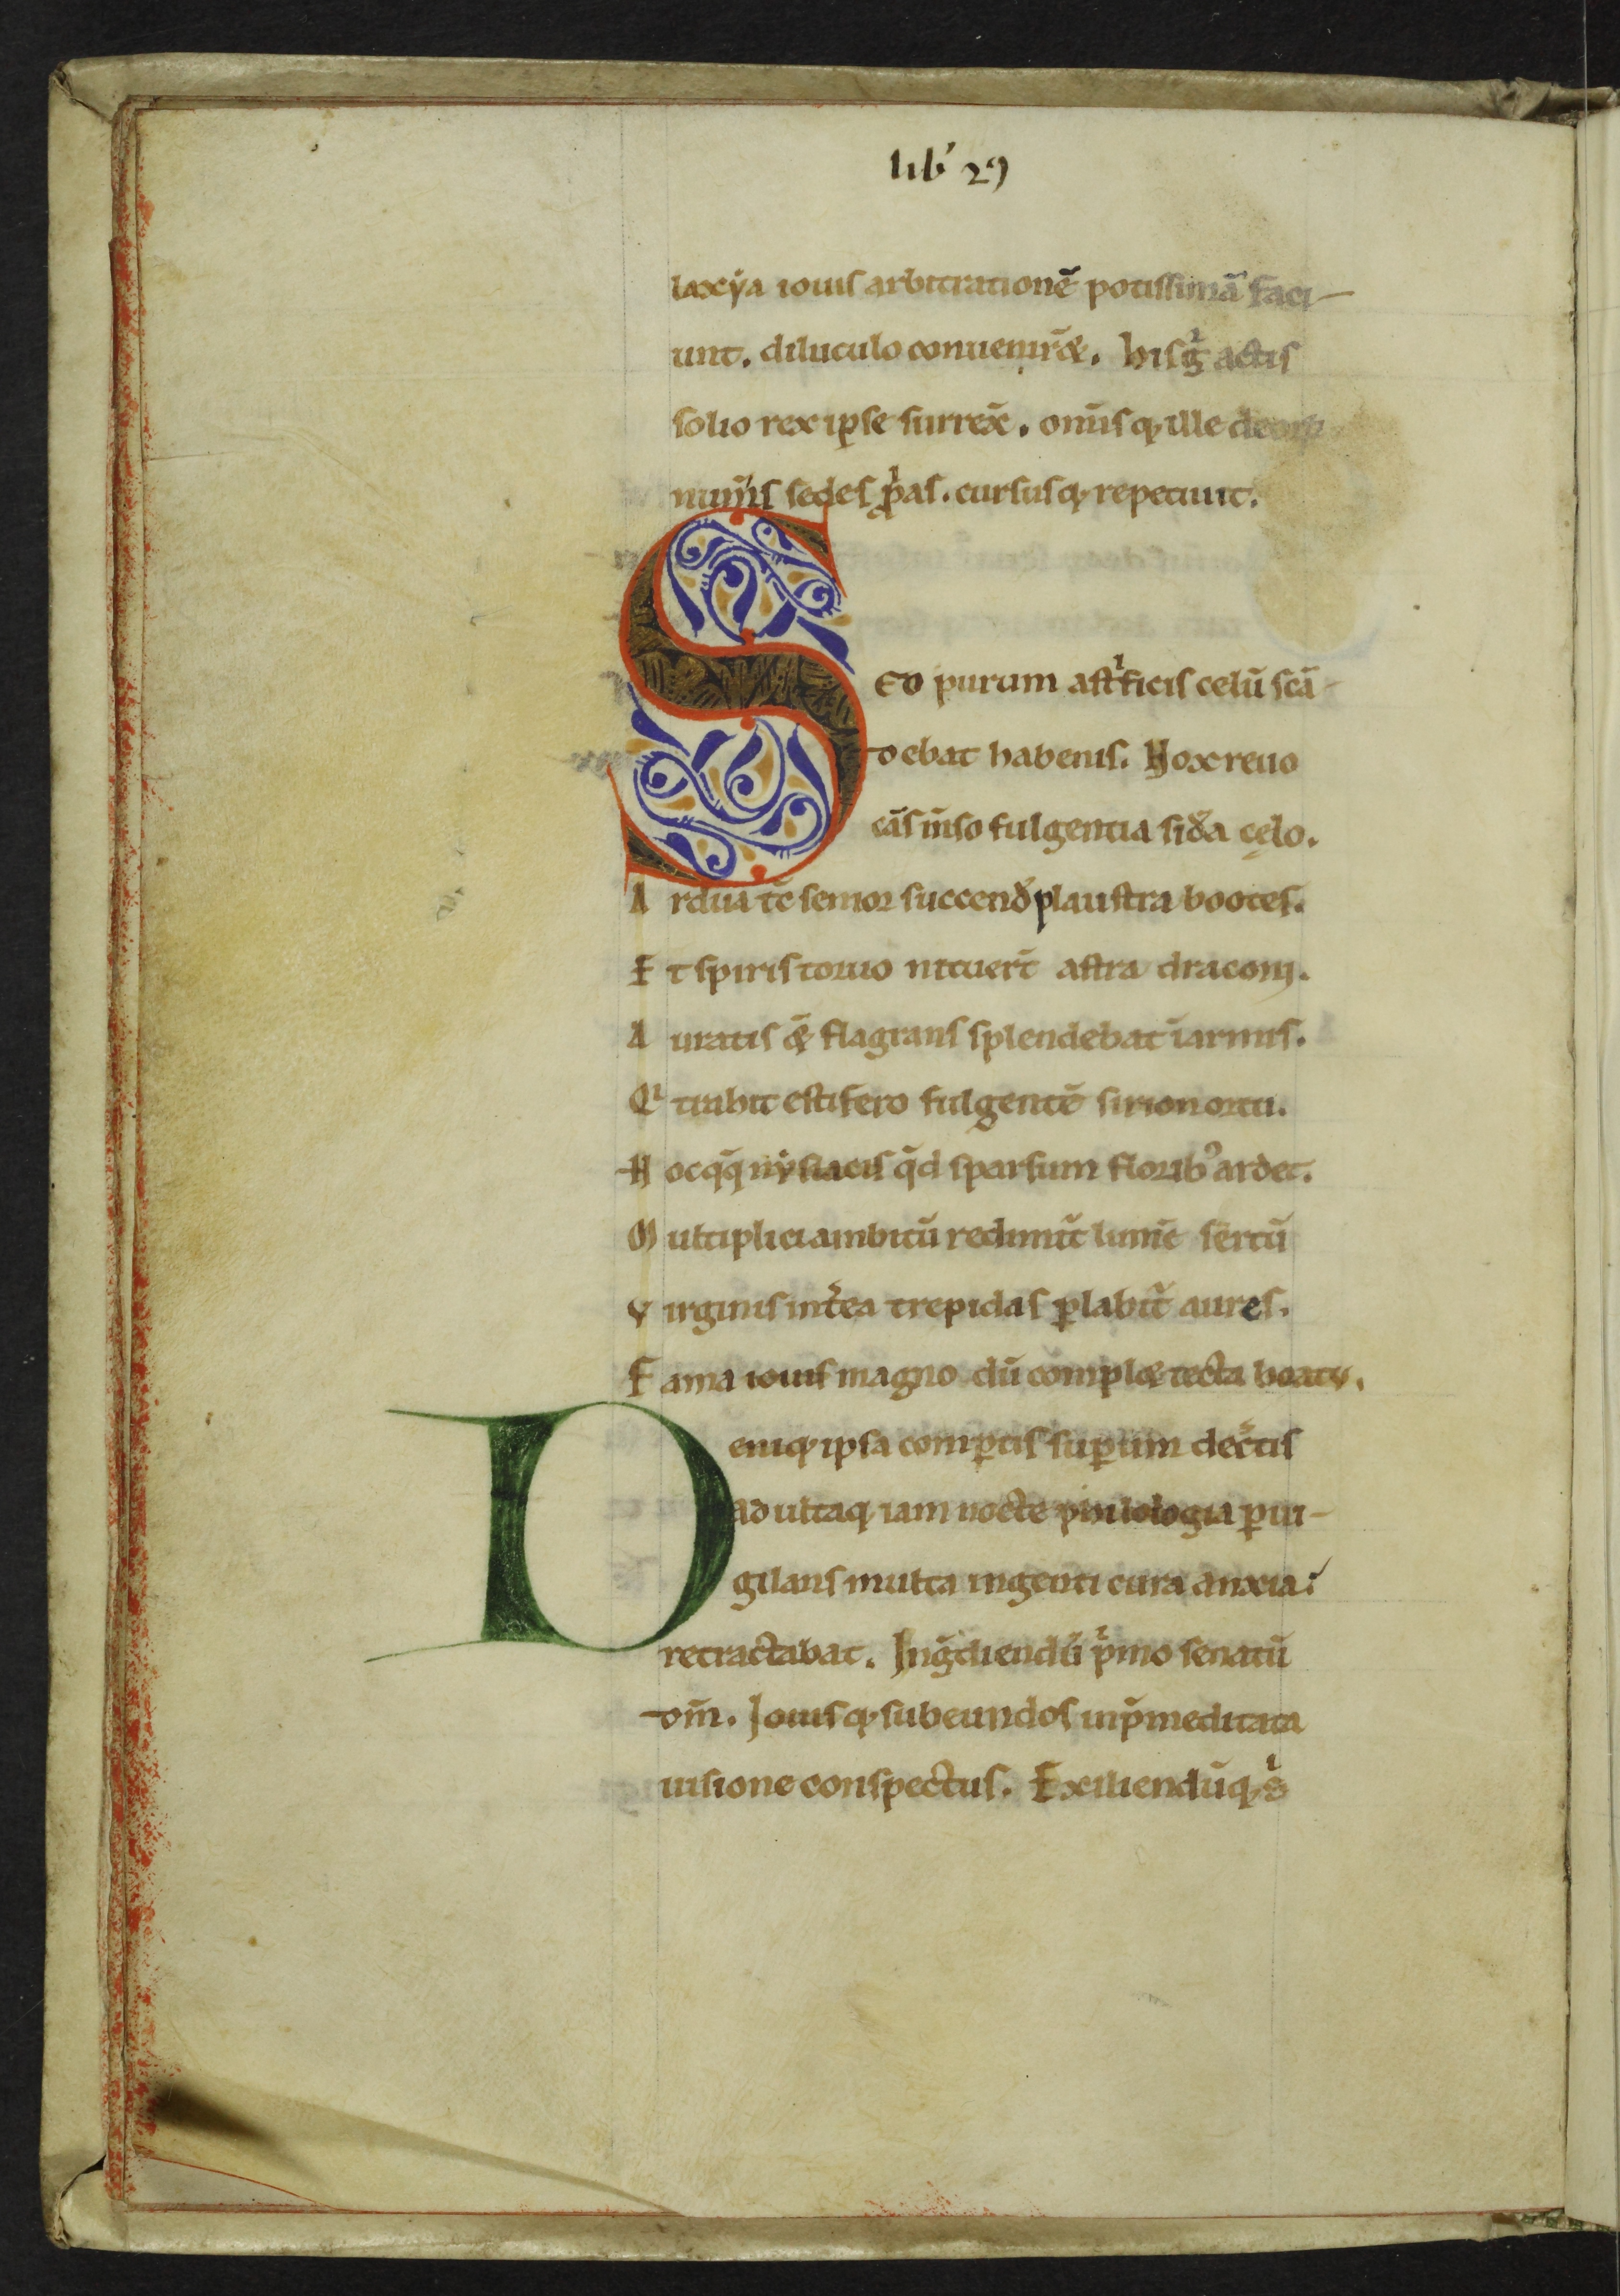 lib' 29
laxẏa iouis arbitrationē potissimā faci-
unt. diluculo conuenir&̄. hisgͥ actis
solio rex ipse surrex̄. om̄is qꝫ ille deoꝝ
num̄is sedes ꝓpͥas. cursusqꝫ repetunt.
SED purum astͥficis celū scā-
debat habenis. Nox reuo
cās īnso fulgentia sid̓a cęlo.
Ardua tc̄ senior succend̓ plaustra bootes.
Et spiris toruo nituer̄t astra draconi.
Auratis &̄ flagrans splendebat īarmis.
Qͥ trahit estifero fulgentē sirion ortu.
Hocqꝫq̄ nẏsiacis qd̄ sparsum florib᾽ ardet.
Multiplici ambitū redimit̄ lumīe sertū
Virginis int̓ea trepidas ꝑlabit᷑ aures.
Fama iouis magno dū compl& tecta boatu.
Deniqꝫ ipsa comꝑtis suꝑum dec̄tis
adultaqꝫ iam nocte philologia ꝑui-
gilans multa ingenti cura anxia:
retractabat. Ing̓diendū pͥmo senatū
dm̄. Iouisqꝫ subeundos inp̄meditata
uisione conspectus. Exiliendūqꝫ sͥ